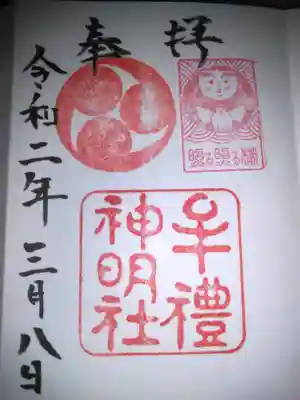 奉拝
牟禮
神明社
令和二年三月八日